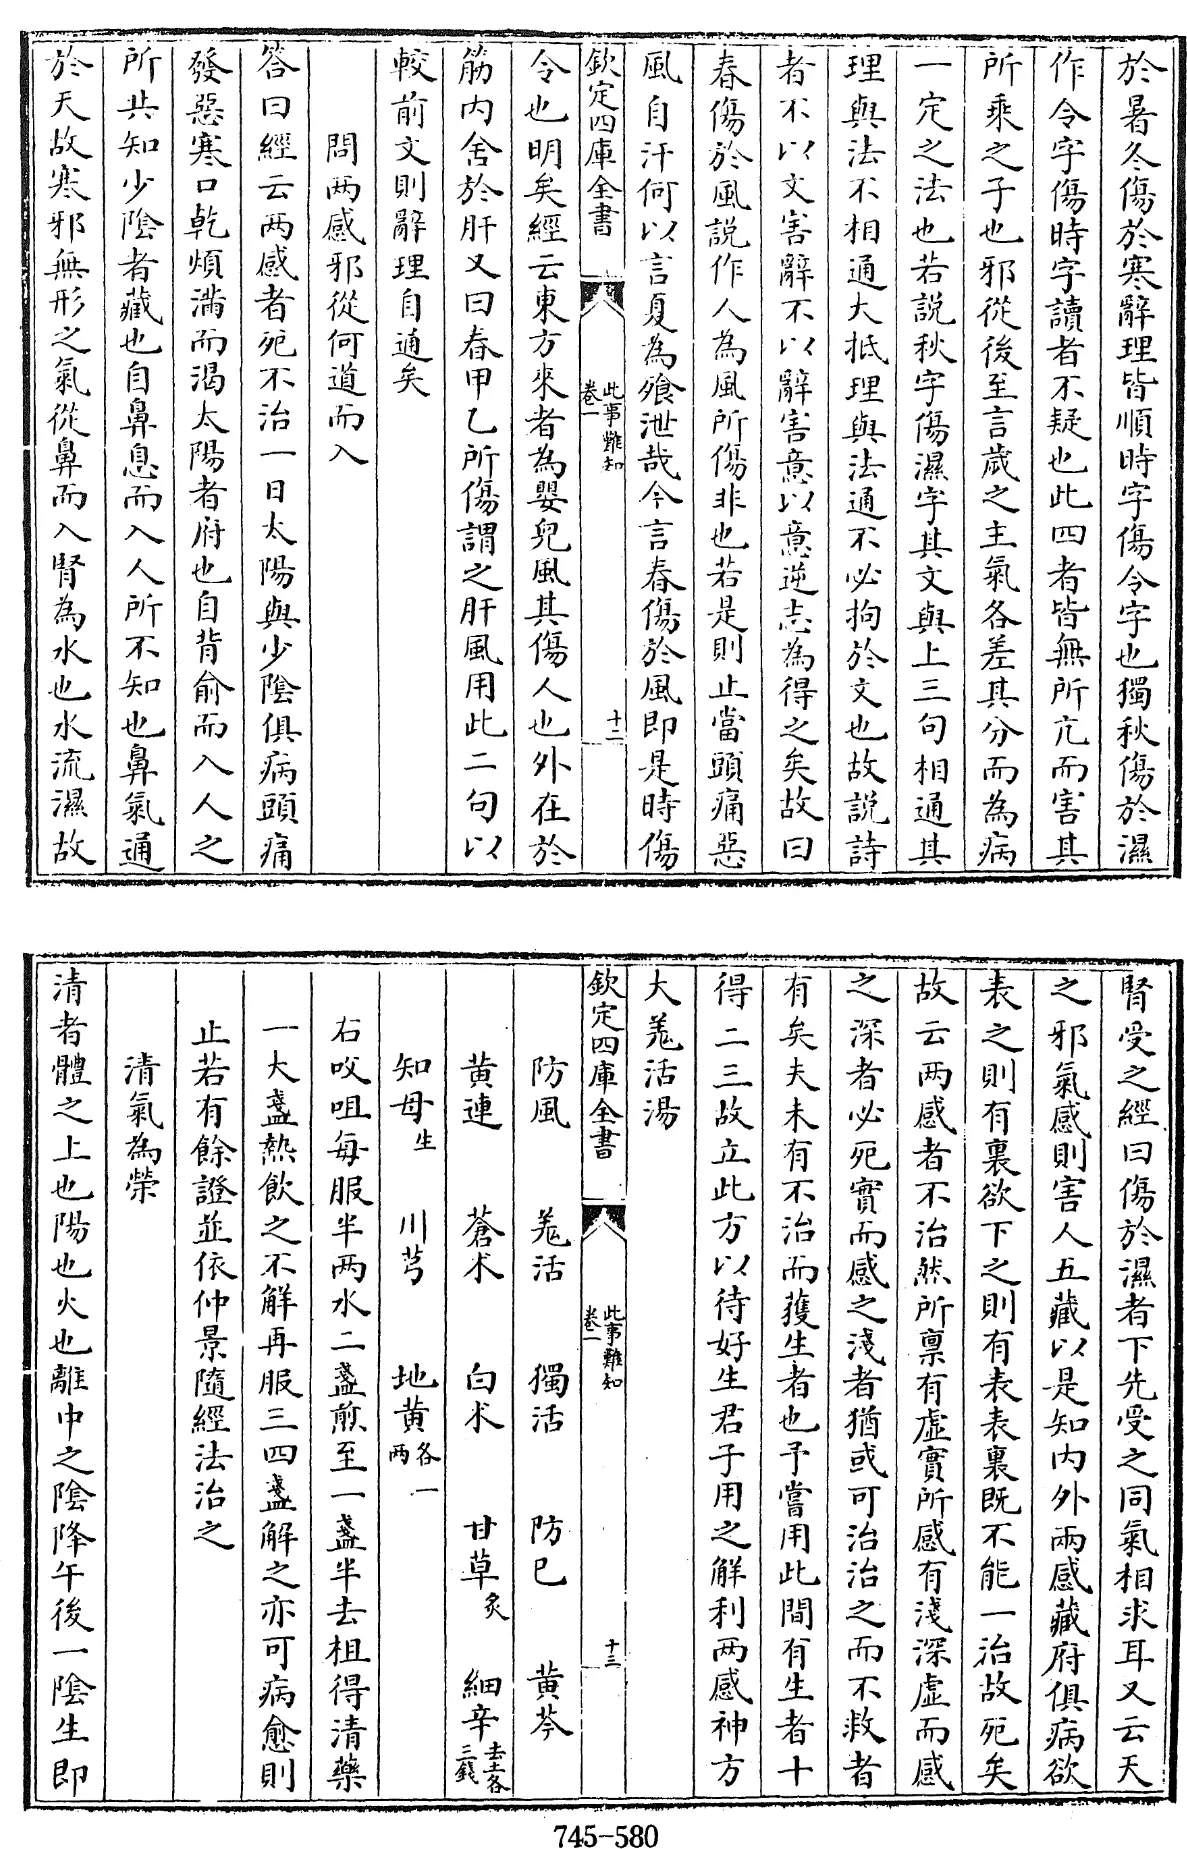 於暑冬傷於寒辭理皆順時字傷令字也獨秋傷於濕
作令字傷時字讀者不疑也此四者皆無所亢而害其
所乘之子也邪從後至言歲之主氣各差其分而為病
一定之法也若說秋字傷濕字其文與上三句相通其
理與法不相通大抵理與法通不必拘於文也故說詩
者不以文害辭不以辭害意以意逆志為得之矣故曰
春傷於風說作人為風所傷非也若是則止當頭痛惡
風自汗何以言夏為飱泄哉今言春傷於風即是時傷
欽定四庫全書
此事難知
卷一
十二
令也明矣經云東方來者為嬰兒風其傷人也外在於
筋內舍於肝又曰春甲乙所傷謂之肝風用此二句以
較前文則辭理自通矣
問两感邪從何道而入
答曰經云两感者死不治一日太陽與少陰俱病頭痛
發惡寒口乾煩滿而渴太陽者府也自背俞而入人之
所共知少陰者藏也自鼻息而入人所不知也鼻氣通
於天故寒邪無形之氣從鼻而入腎為水也水流濕故
腎受之經曰傷於濕者下先受之同氣相求耳又云天
之邪氣感則害人五藏以是知内外兩感藏府俱病欲
表之則有裏欲下之則有表表裏既不能一治故死矣
故云两感者不治然所禀有虛實所感有淺深虛而感
之深者必死實而感之淺者猶或可治治之而不救者
有矣夫未有不治而獲生者也予嘗用此間有生者十
得二三故立此方以待好生君子用之解利两感神方
大羗活湯
欽定四庫全書
此事難知
卷一
十三
防風 羗活 獨活 防已 黄芩
黄連 蒼术 白术 甘草炙 細辛去土各三錢
知母生 川芎 地黄各一两
右㕮咀每服半两水二盞煎至一盞半去柤得清藥
一大盞熱飲之不解再服三四盞解之亦可病愈則
止若有餘證並依仲景隨經法治之
清氣為榮
清者體之上也陽也火也離中之陰降午後一陰生即
745-580